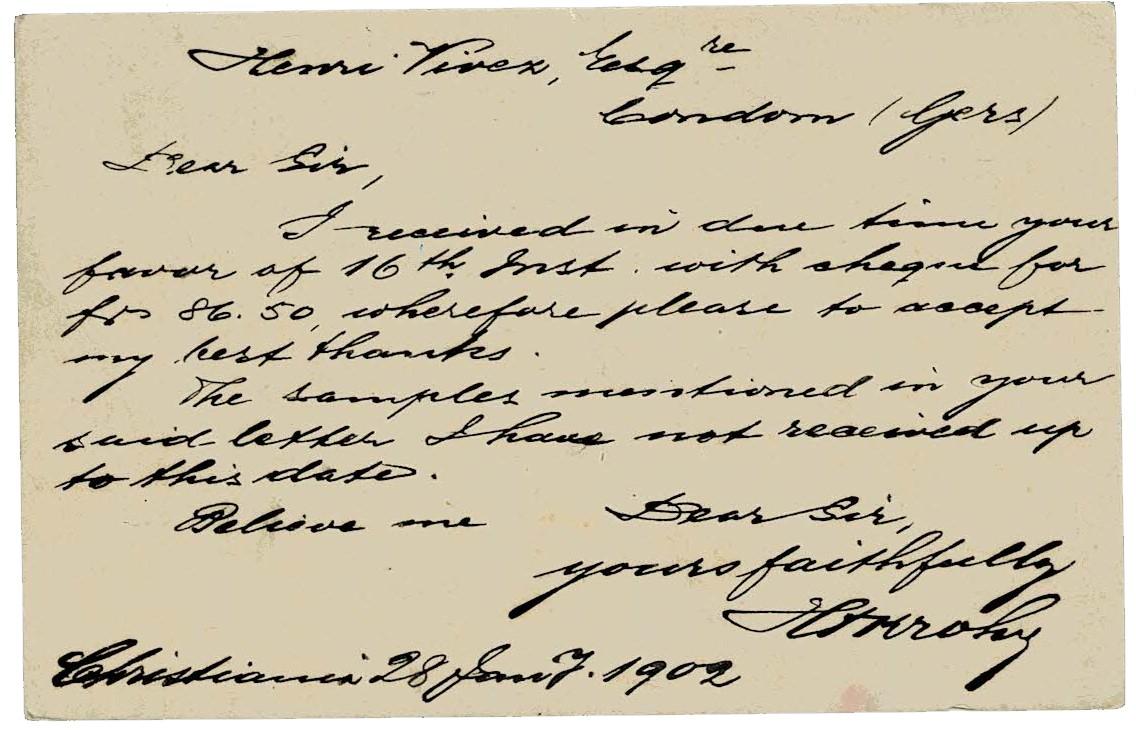 Henri Vivez, Esqre
Condom (Gers)
Dear Sir,
I received in due time your
favor of 16th Inst. with cheque for
frs 86.50, wherefore please to accept
my best thanks.
The samples mentioned in your
said letter I have not received up
to this date.
Believe me Dear Sir,
yours faithfully
Christiania 28 Jany. 1902